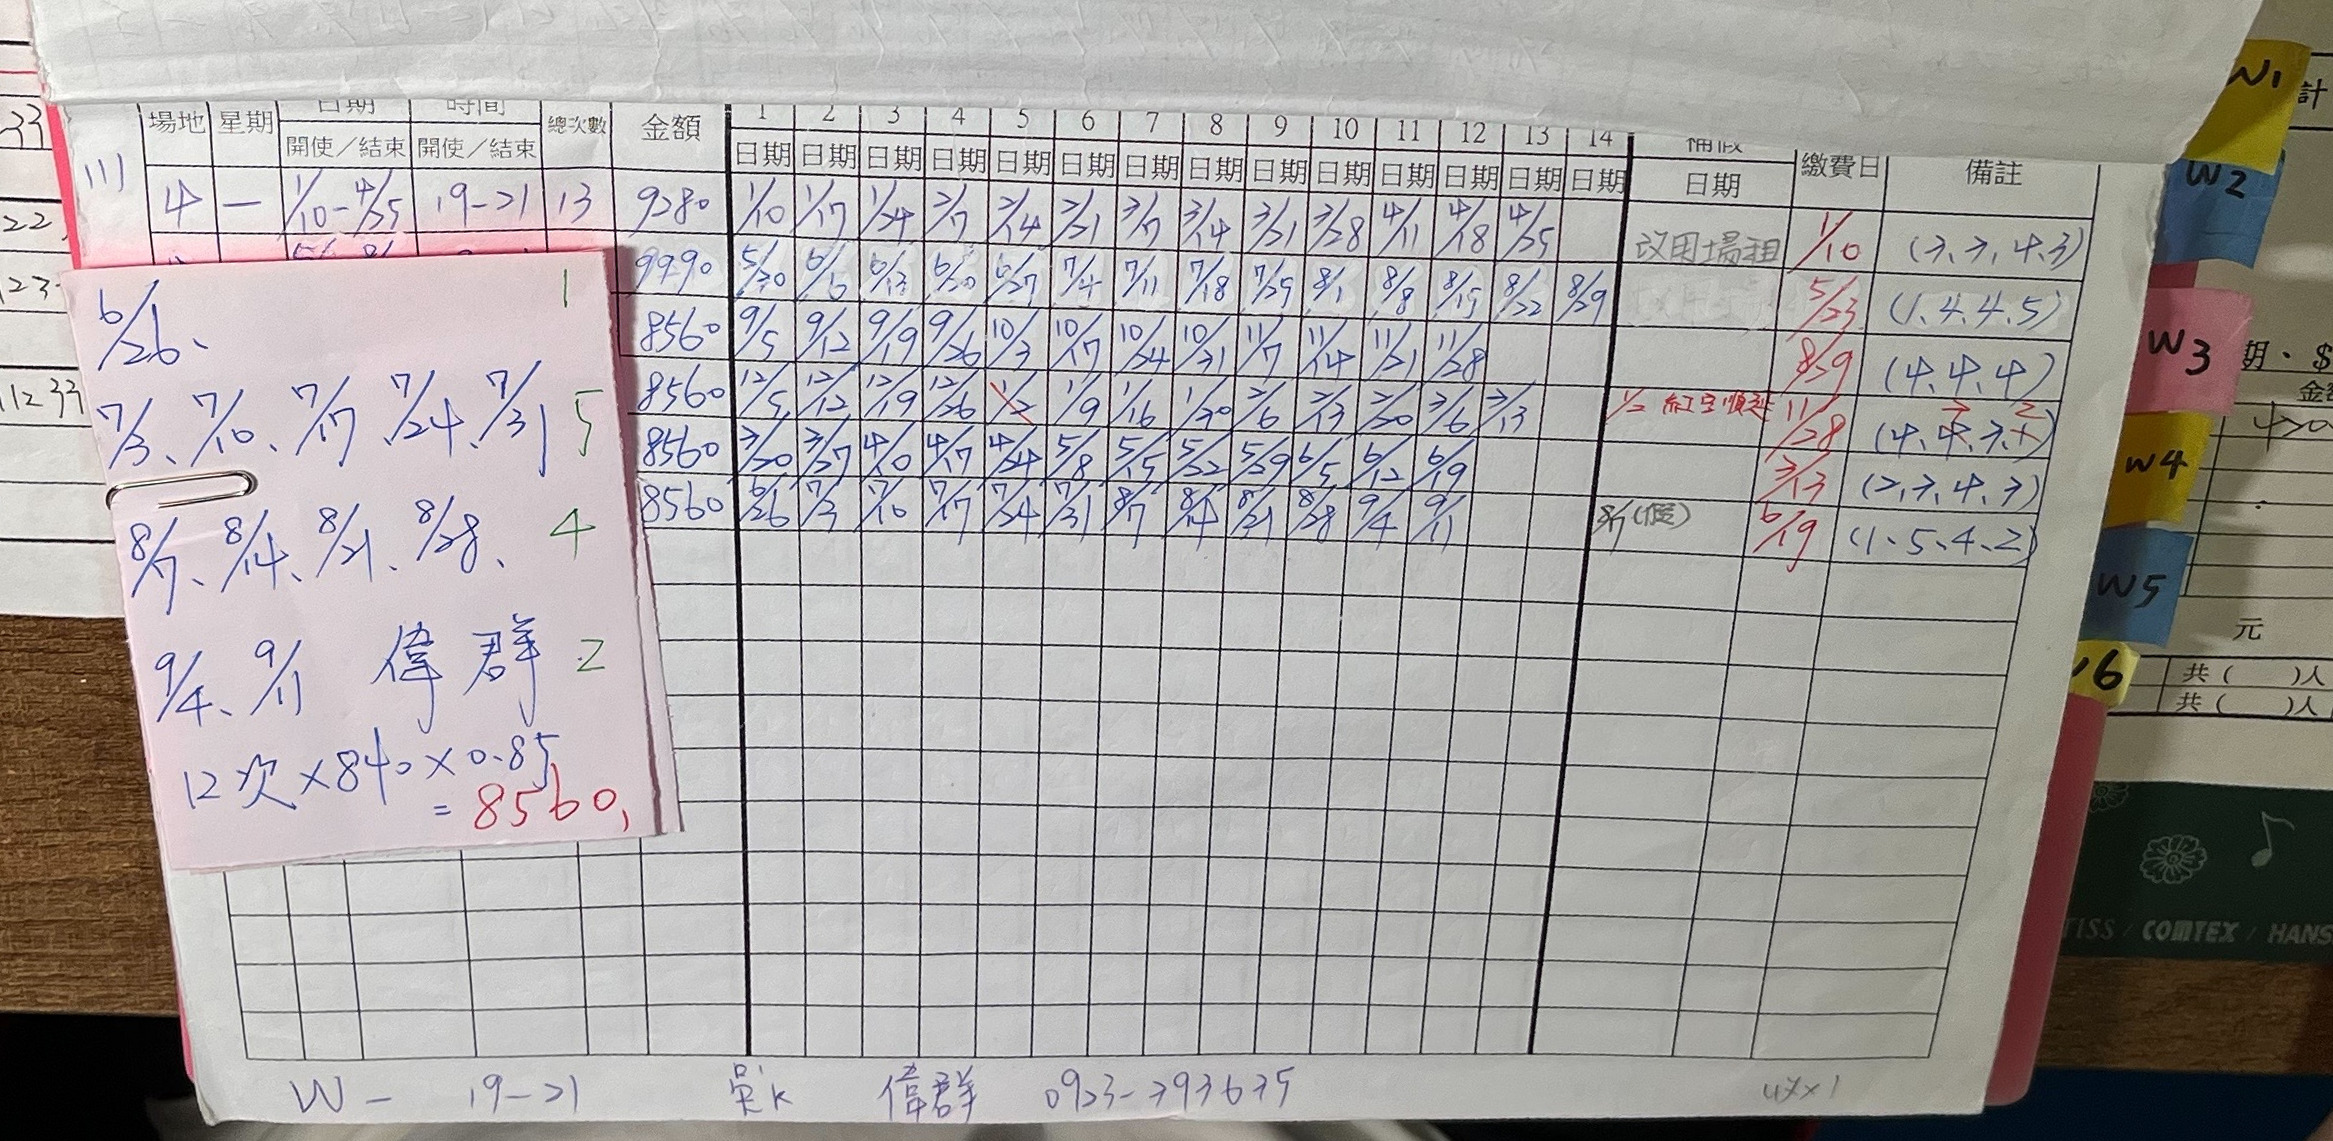 場地 星期 日期 時間 總次數 金額 1 2 3 4 5 6 7 8 9 10 11 12 13 14 補假 繳費日 備註
開使/結束 開使/結束 日期 日期 日期 日期 日期 日期 日期 日期 日期 日期 日期 日期 日期 日期 日期
111 4 一 1/10-4/25 19-21 13 9280 1/10 1/17 1/24 2/7 2/14 2/21 3/7 3/14 3/21 3/28 4/11 4/18 4/25 改用場租 1/10 (3、3、4、3)
9990 5/30 6/6 6/13 6/20 6/27 7/4 7/11 7/18 7/29 8/1 8/8 8/15 8/22 8/29 5/23 (1、4、4、5)
8560 9/5 9/12 9/19 9/26 10/3 10/17 10/24 10/31 11/7 11/14 11/21 11/28 8/29 (4、4、4)
8560 12/5 12/12 12/19 12/26 1/2 1/9 1/16 1/30 2/6 2/13 2/20 3/6 3/13 1/2 紅字順延 11/28
8560 3/20 3/27 4/10 4/17 4/24 5/8 5/15 5/22 5/29 6/5 6/12 6/19 3/13 (2、3、4、3)
8560 6/26 7/3 7/10 7/17 7/24 7/31 8/7 8/14 8/21 8/28 9/4 9/11 8/7(假) 6/19 (1、5、4、2)
6/26、 1
7/3、7/10、7/17 7/24、7/31 5
8/7、8/14、8/21、8/28、 4
9/4、9/11 偉群 2
12次×840×0.85
=8560,
W一 19-21 吳'k 偉群 0923-393635
W1
W2
W3
W4
W5
計
元
共( )人
共( )人
TISS / COMTEX / HANS